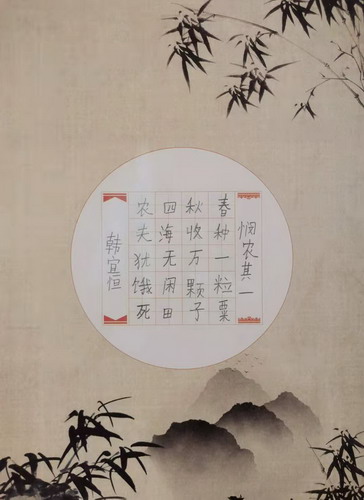 悯农其一
春种一粒粟
秋收万颗子
四海无闲田
农夫犹饿死
韩宜恒